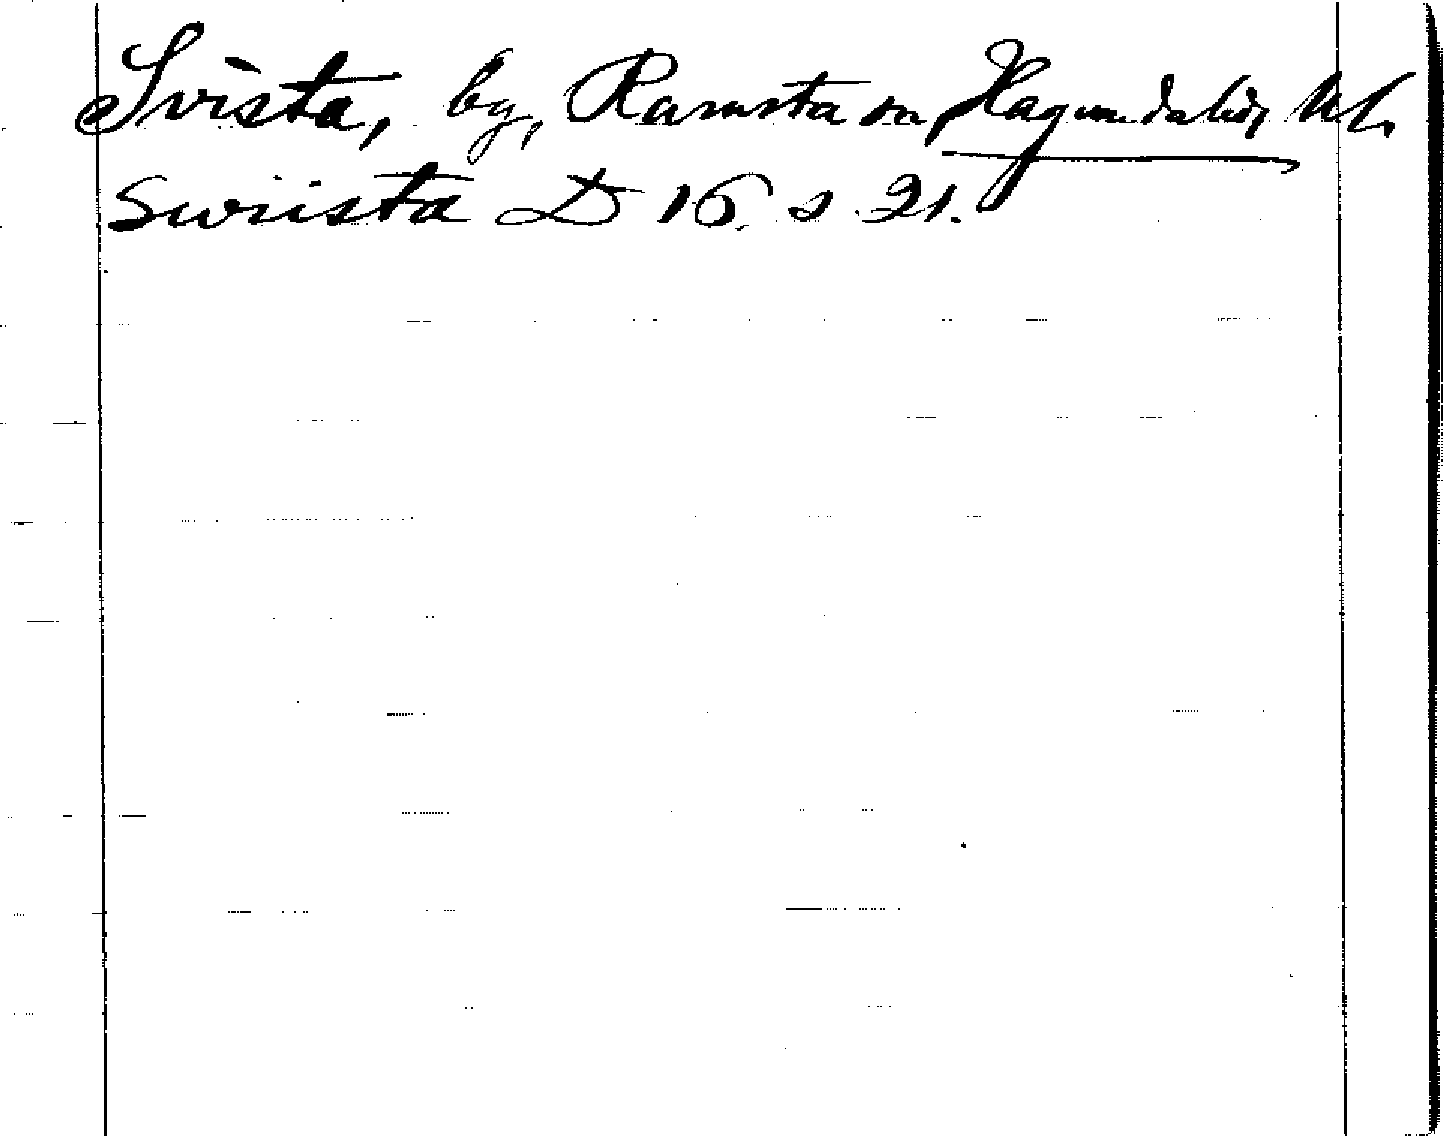 Svista, by, Ramsta sn, Hagunda hd, Upl.
Swiista D 16. s 21.